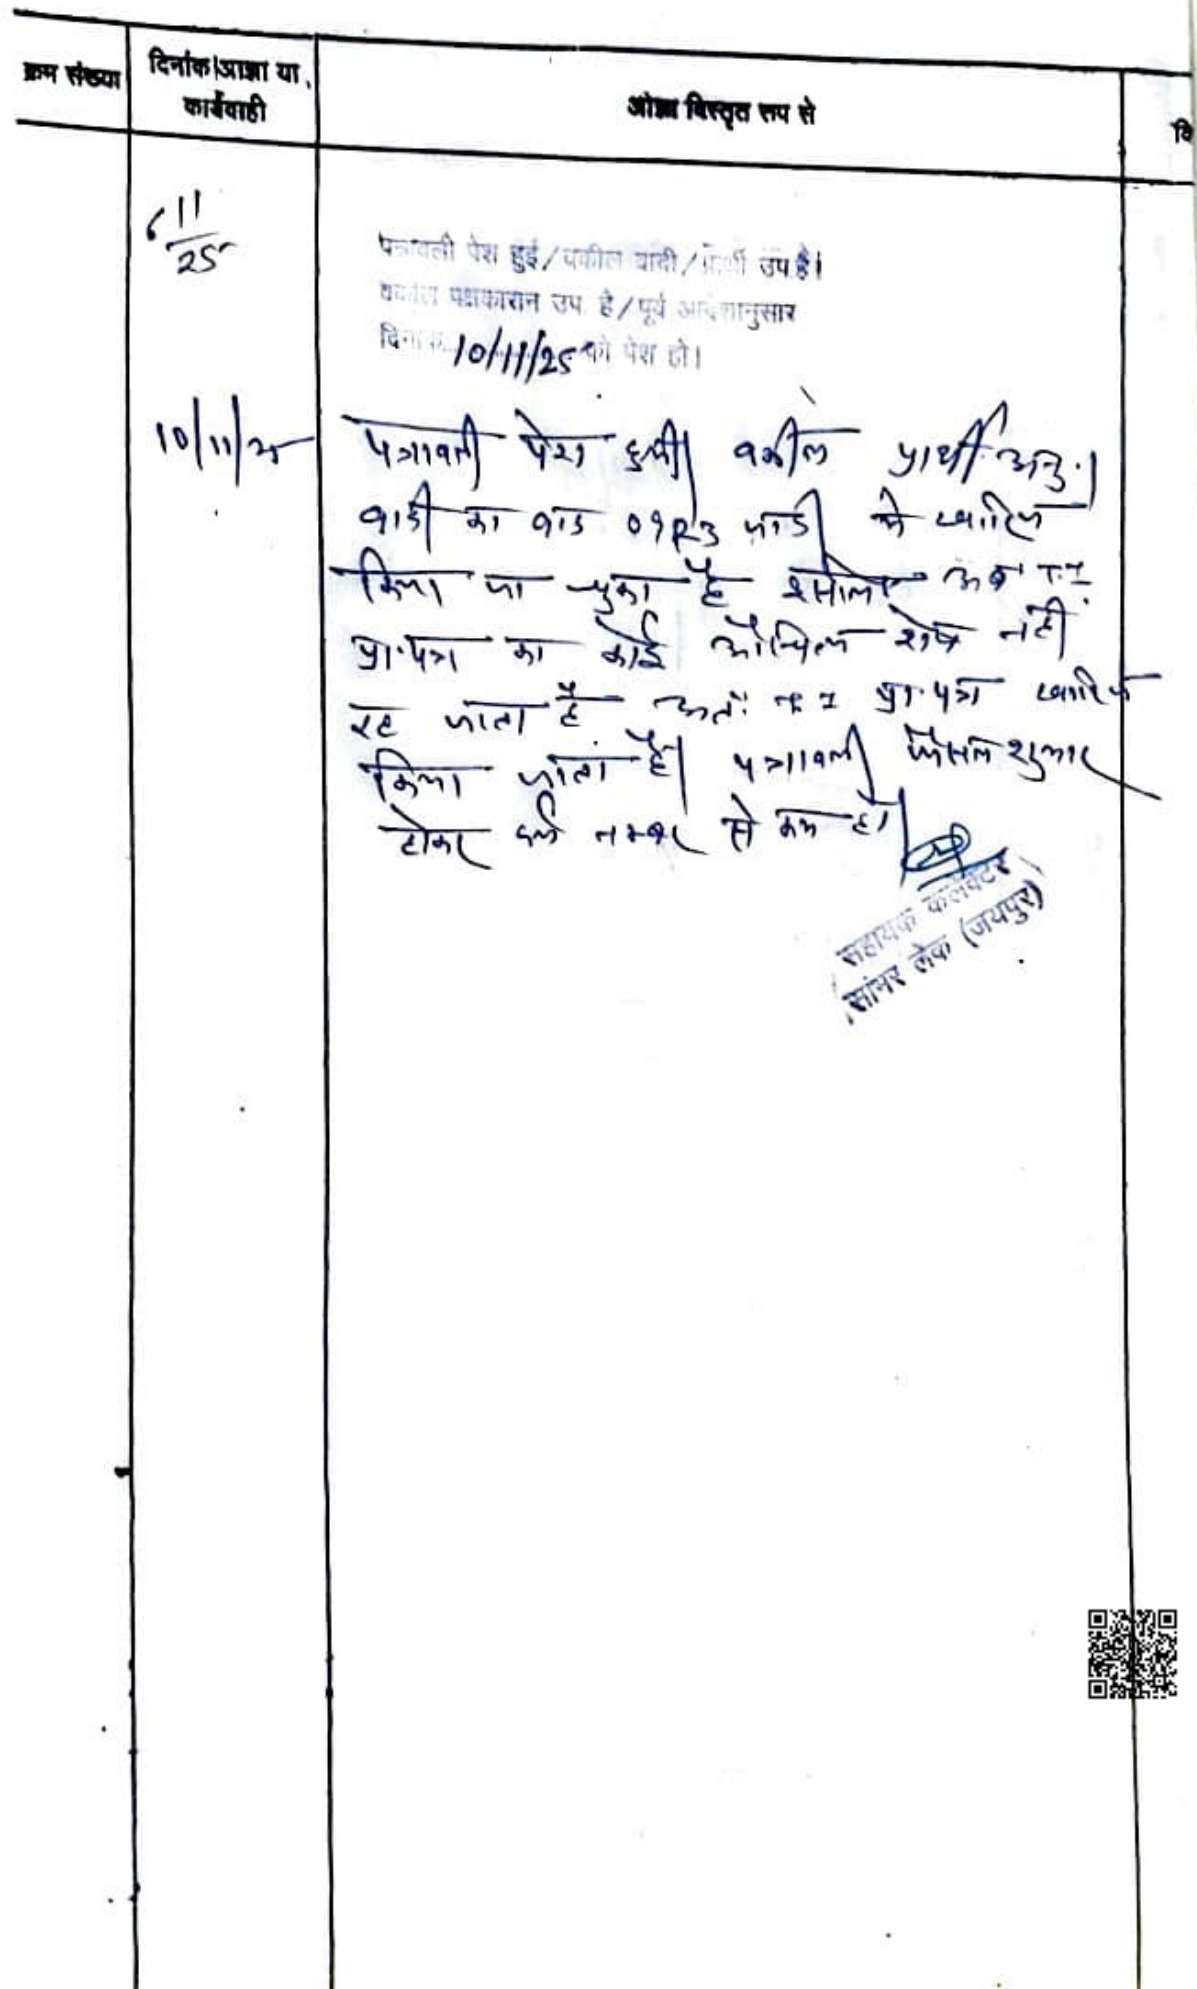 क्रम संख्या
दिनांक आज्ञा या
कार्यवाही
आज्ञा विस्तृत रूप से
वि
6/11/25
पत्रावली पेश हुई/वकील वादी/प्रार्थी उप.है।
वकील पक्षकारान उप. है/पूर्व आदेशानुसार
दिनांक 10/11/25 को पेश हो।
10/11/25
पत्रावली पेश हुयी। वकील प्रार्थी अनु.।
वादी का वाद में खारिज
किया जा चुका है इसलिए अब T.I
प्रा.पत्र का कोई औचित्य शेष नहीं
रह जाता है अतः T.I प्रा.पत्र खारिज
किया जाता है। पत्रावली फैसल शुमार
होकर दर्ज नम्बर से कम हो।
सहायक कलेक्टर
सांभर लेक (जयपुर)